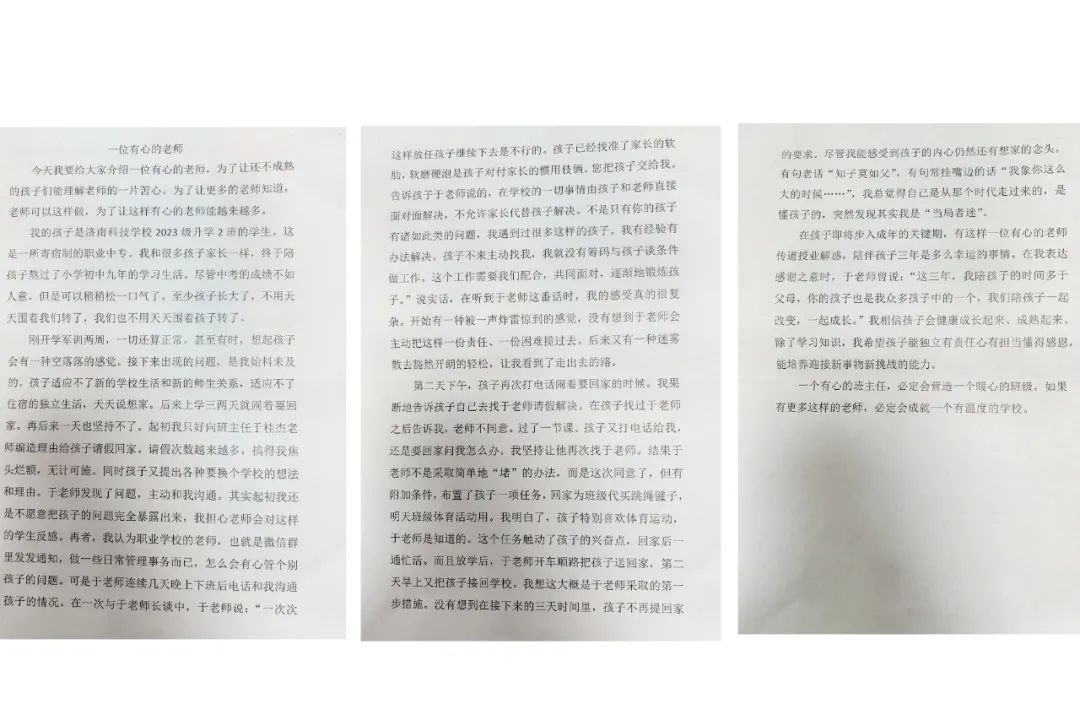 一位有心的老师
今天我要给大家介绍一位有心的老师，为了让还不成熟
的孩子们能理解老师的一片苦心。为了让更多的老师知道，
老师可以这样做，为了让这样有心的老师能越来越多。
我的孩子是济南科技学校2023级升学2班的学生。这
是一所寄宿制的职业中专。我和很多孩子家长一样，终于陪
孩子熬过了小学初中九年的学习生活。尽管中考的成绩不如
人意、但是可以稍稍松一口气了。至少孩子长大了，不用天
天围着我们转了，我们也不用天天围着孩子转了。
刚开学军训两周，一切还算正常。甚至有时，想起孩子
会有一种空落落的感觉。接下来出现的问题，是我始料未及
的。孩子适应不了新的学校生活和新的师生关系，适应不了
住宿的独立生活，天天说想家。后来上学三两天就闹着要回
家。再后来一天也坚持不了。起初我只好向班主任于桂杰老
师编造理由给孩子请假回家。请假次数越来越多，搞得我焦
头烂额，无计可施。同时孩子又提出各种要换个学校的想法
和理由。于老师发现了问题，主动和我沟通。其实起初我还
是不愿意把孩子的问题完全暴露出来，我担心老师会对这样
的学生反感。再者，我认为职业学校的老师，也就是微信群
里发发通知，做一些日常管理事务而已，怎么会有心管个别
孩子的问题。可是于老师连续几天晚上下班后电话和我沟通
孩子的情况。在一次与于老师长谈中，于老师说：“一次次
这样放任孩子继续下去是不行的。孩子已经找准了家长的软
肋，软磨硬泡是孩子对付家长的惯用伎俩。您把孩子交给我。
告诉孩子于老师说的，在学校的一切事情由孩子和老师直接
面对面解决，不允许家长代替孩子解决。不是只有你的孩子
有诸如此类的问题，我遇到过很多这样的孩子。我有经验有
办法解决。孩子不来主动找我，我就没有筹码与孩子谈条件
做工作。这个工作需要我们配合，共同面对，逐渐地锻炼孩
子。”说实话，在听到于老师这番话时，我的感受真的很复
杂。开始有一种被一声炸雷惊到的感觉，没有想到于老师会
主动把这样一份责任、一份困难揽过去。后来又有一种迷雾
散去豁然开朗的轻松，让我看到了走出去的路。
第二天下午，孩子再次打电话闹着要回家的时候。我果
断地告诉孩子自己去找于老师请假解决。在孩子找过于老师
之后告诉我，老师不同意。过了一节课。孩子又打电话给我，
还是要回家问我怎么办。我坚持让他再次找于老师。结果于
老师不是采取简单地“堵”的办法，而是这次同意了，但有
附加条件，布置了孩子一项任务，回家为班级代买跳绳毽子，
明天班级体育活动用。我明白了，孩子特别喜欢体育运动，
于老师是知道的。这个任务触动了孩子的兴奋点，回家后一
通忙活。而且放学后，于老师开车顺路把孩子送回家，第二
天早上又把孩子接回学校，我想这大概是于老师采取的第一
步措施。没有想到在接下来的三天时间里，孩子不再提回家
的要求。尽管我能感受到孩子的内心仍然还有想家的念头。
有句老话“知子莫如父”，有句常挂嘴边的话“我象你这么
大的时候……”，我总觉得自己是从那个时代走过来的，是
懂孩子的，突然发现其实我是“当局者迷”。
在孩子即将步入成年的关键期，有这样一位有心的老师
传道授业解惑，陪伴孩子三年是多么幸运的事情。在我表达
感谢之意时，于老师曾说：“这三年，我陪孩子的时间多于
父母，你的孩子也是我众多孩子中的一个，我们陪孩子一起
改变，一起成长。”我相信孩子会健康成长起来、成熟起来。
除了学习知识，我希望孩子能独立有责任心有担当懂得感恩，
能培养迎接新事物新挑战的能力。
一个有心的班主任，必定会营造一个暖心的班级，如果
有更多这样的老师，必定会成就一个有温度的学校。